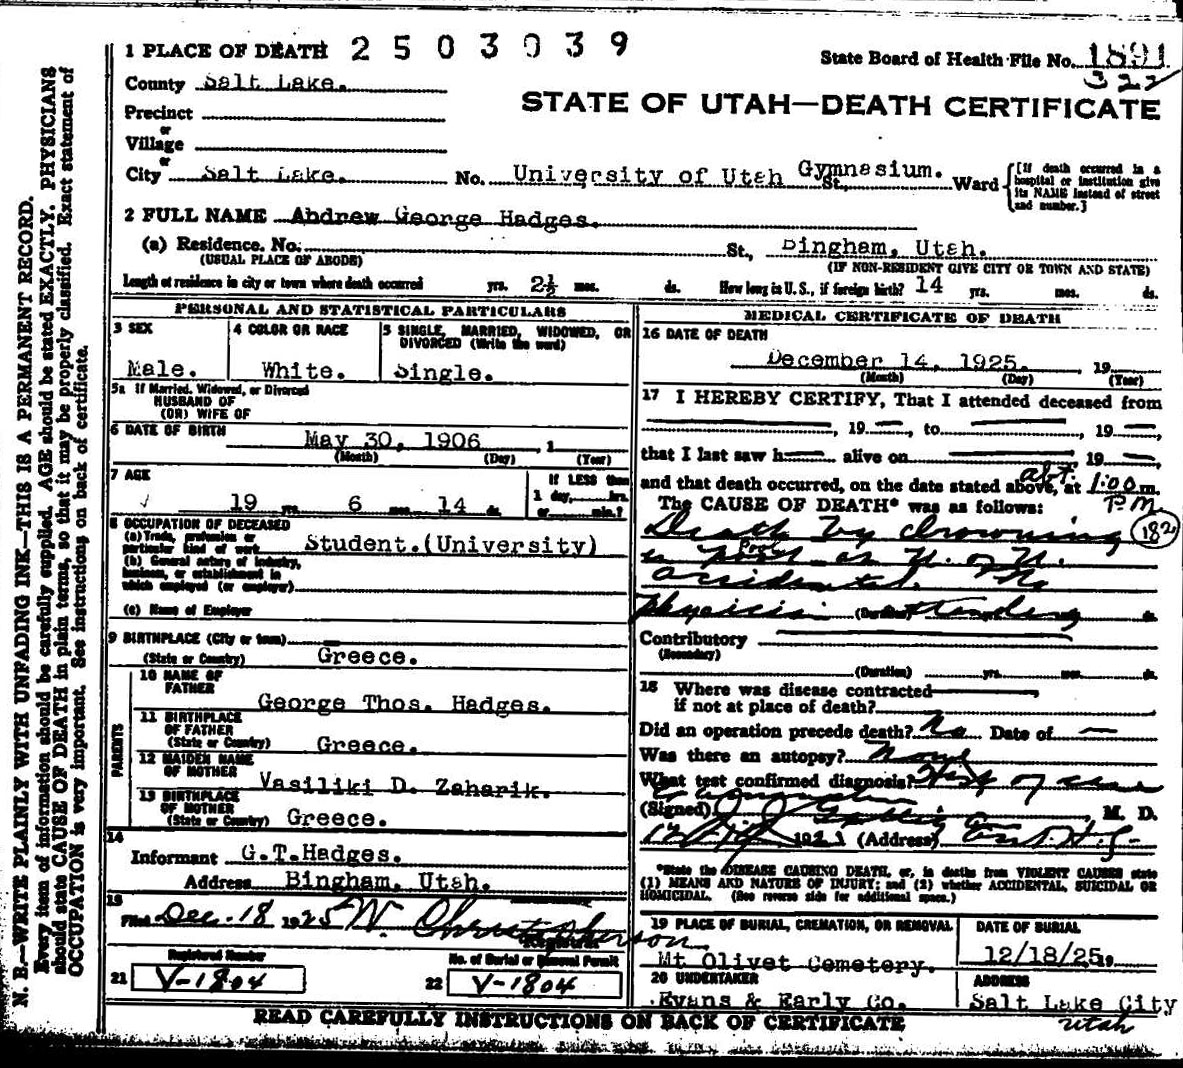 1 PLACE OF DEATH 2503039
State Board of Health File No. 1891
322
County Salt Lake.
STATE OF UTAH—DEATH CERTIFICATE
Precinct
or
Village
or
City Salt Lake. No. University of Utah Gymnasium. St., Ward [If death occurred in a hospital or institution give its NAME instead of street and number.]
2 FULL NAME Abdrew George Hadges.
(a) Residence. No. St., Bingham, Utah.
(USUAL PLACE OF ABODE) (IF NON-RESIDENT GIVE CITY OR TOWN AND STATE)
Length of residence in city or town where death occurred yrs. 2½ mos. ds. How long in U.S., if foreign birth? 14 yrs. mos. ds.
PERSONAL AND STATISTICAL PARTICULARS
3 SEX 4 COLOR OR RACE 5 SINGLE, MARRIED, WIDOWED, OR DIVORCED (Write the word)
Male. White. Single.
5a If Married, Widowed, or Divorced
HUSBAND OF
(OR) WIFE OF
6 DATE OF BIRTH May 30, 1906 , 1
(Month) (Day) (Year)
7 AGE If LESS than
1 day, hrs.
19 yrs. 6 mos. 14 ds. or min.?
8 OCCUPATION OF DECEASED
(a) Trade, profession or
particular kind of work Student.(University)
(b) General nature of industry,
business, or establishment in
which employed (or employer)
(c) Name of Employer
9 BIRTHPLACE (City or town)
(State or Country) Greece.
PARENTS
10 NAME OF
FATHER George Thos. Hadges.
11 BIRTHPLACE
OF FATHER
(State or Country) Greece.
12 MAIDEN NAME
OF MOTHER Vasiliki D. Zaharik.
13 BIRTHPLACE
OF MOTHER
(State or Country) Greece.
14
Informant G.T.Hadges.
Address Bingham, Utah.
15
Filed Dec. 18 1925 W. Christopherson
Registrar
Registered Number No. of Burial or Removal Permit
21 V-1804 22 V-1804
MEDICAL CERTIFICATE OF DEATH
16 DATE OF DEATH
December 14, 1925. 19
(Month) (Day) (Year)
17 I HEREBY CERTIFY, That I attended deceased from
, 19 , to , 19 ,
that I last saw h alive on 19 ,
and that death occurred, on the date stated above, at abt. 1:00 m.
P.M
The CAUSE OF DEATH* was as follows:
Death by drowning 182
in pool at U. of U.
accidental. No
physician (Duration) attending ds.
Contributory
(Secondary)
(Duration) yrs. mos. ds.
18 Where was disease contracted
if not at place of death?
Did an operation precede death? No Date of —
Was there an autopsy? None
What test confirmed diagnosis? Hist of case
(Signed) M. D.
192 (Address)
*State the DISEASE CAUSING DEATH, or, in deaths from VIOLENT CAUSES state
(1) MEANS AND NATURE OF INJURY; and (2) whether ACCIDENTAL, SUICIDAL OR
HOMICIDAL. (See reverse side for additional space.)
19 PLACE OF BURIAL, CREMATION, OR REMOVAL DATE OF BURIAL
Mt Olivet Cemetery. 12/18/25.
20 UNDERTAKER ADDRESS
Evans & Early Co. Salt Lake City
Utah
READ CAREFULLY INSTRUCTIONS ON BACK OF CERTIFICATE
N. B.—WRITE PLAINLY WITH UNFADING INK—THIS IS A PERMANENT RECORD.
Every item of information should be carefully supplied. AGE should be stated EXACTLY. PHYSICIANS
should state CAUSE OF DEATH in plain terms, so that it may be properly classified. Exact statement of
OCCUPATION is very important. See instructions on back of certificate.